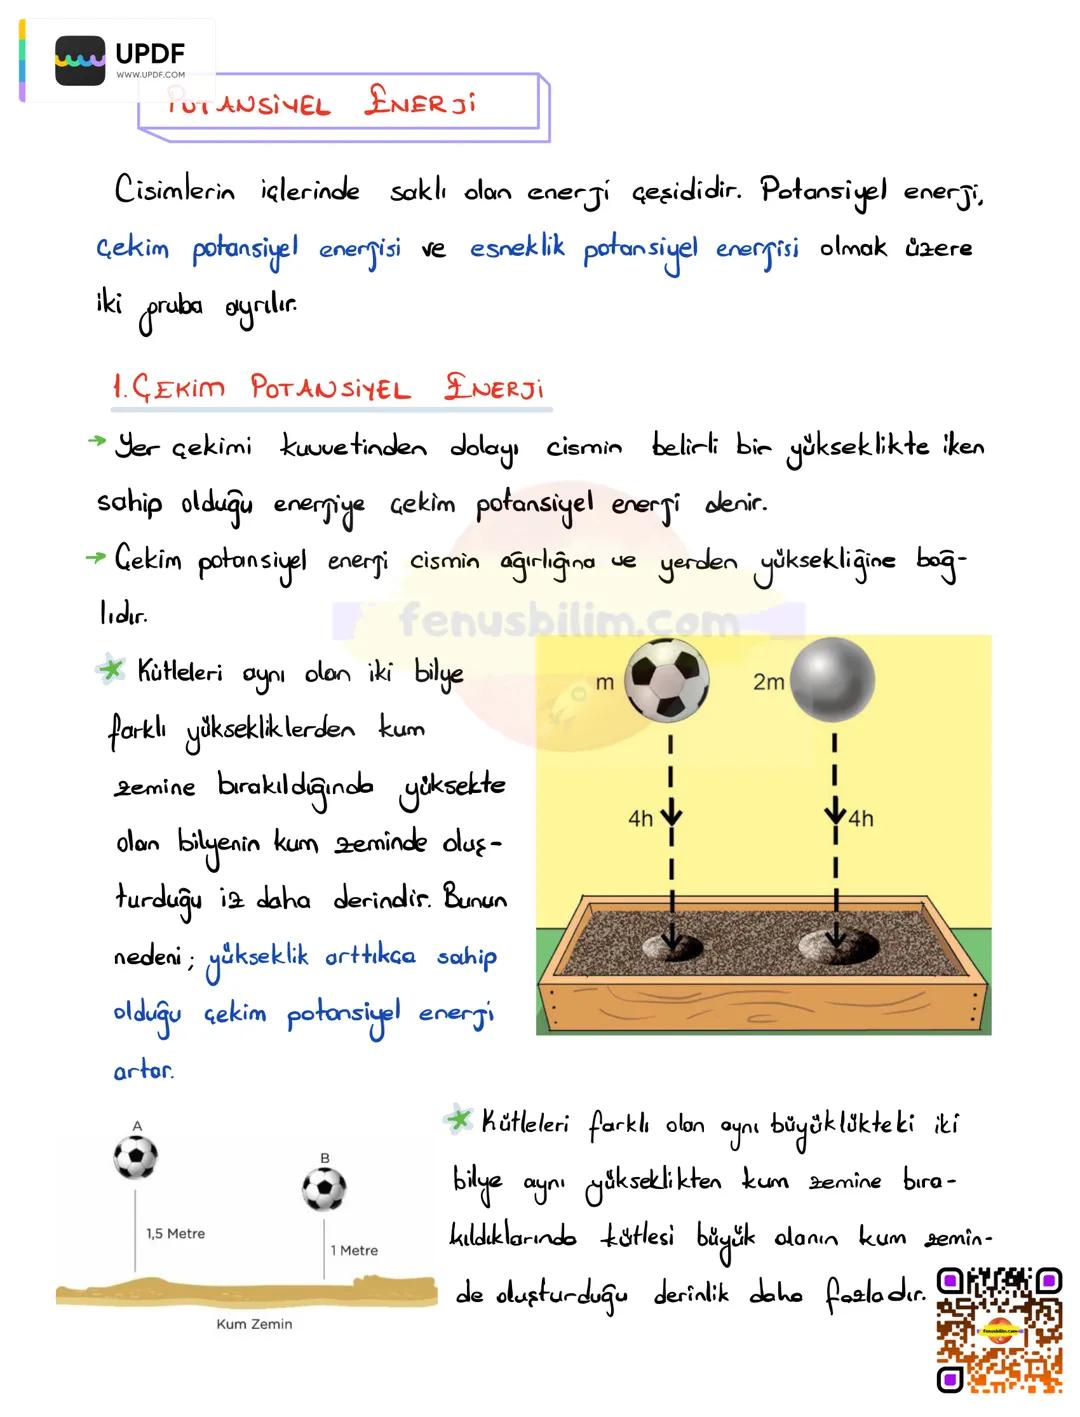 UPDF
WWW.UPDF.COM
POTANSİYEL ENERJİ
Cisimlerin içlerinde saklı olan enerji çeşididir. Potansiyel enerji,
çekim potansiyel enerjisi ve esneklik potansiyel enerjisi olmak üzere
iki gruba ayrılır.
1. ÇEKİM POTANSİYEL ENERJİ
→ Yer çekimi kuvvetinden dolayı cismin belirli bir yükseklikte iken
sahip olduğu enerjiye çekim potansiyel enerji denir.
→ Çekim potansiyel enerji cismin ağırlığına ve yerden yüksekliğine bağ-
lıdır.
fenusbilim.com
Kütleleri aynı olan iki bilye
farklı yüksekliklerden kum
zemine bırakıldığında yüksekte
olan bilyenin kum zeminde oluş-
turduğu iz daha derindir. Bunun
nedeni; yükseklik arttıkça sahip
olduğu çekim potansiyel enerji
artar.
m
2m
4h
4h
A
B
1,5 Metre
1 Metre
Kum Zemin
Kütleleri farklı olan aynı büyüklükteki iki
bilye aynı yükseklikten kum zemine bıra-
kıldıklarında kütlesi büyük olanın kum zemin-
de oluşturduğu derinlik daha fazladır.
fenusbilim.com